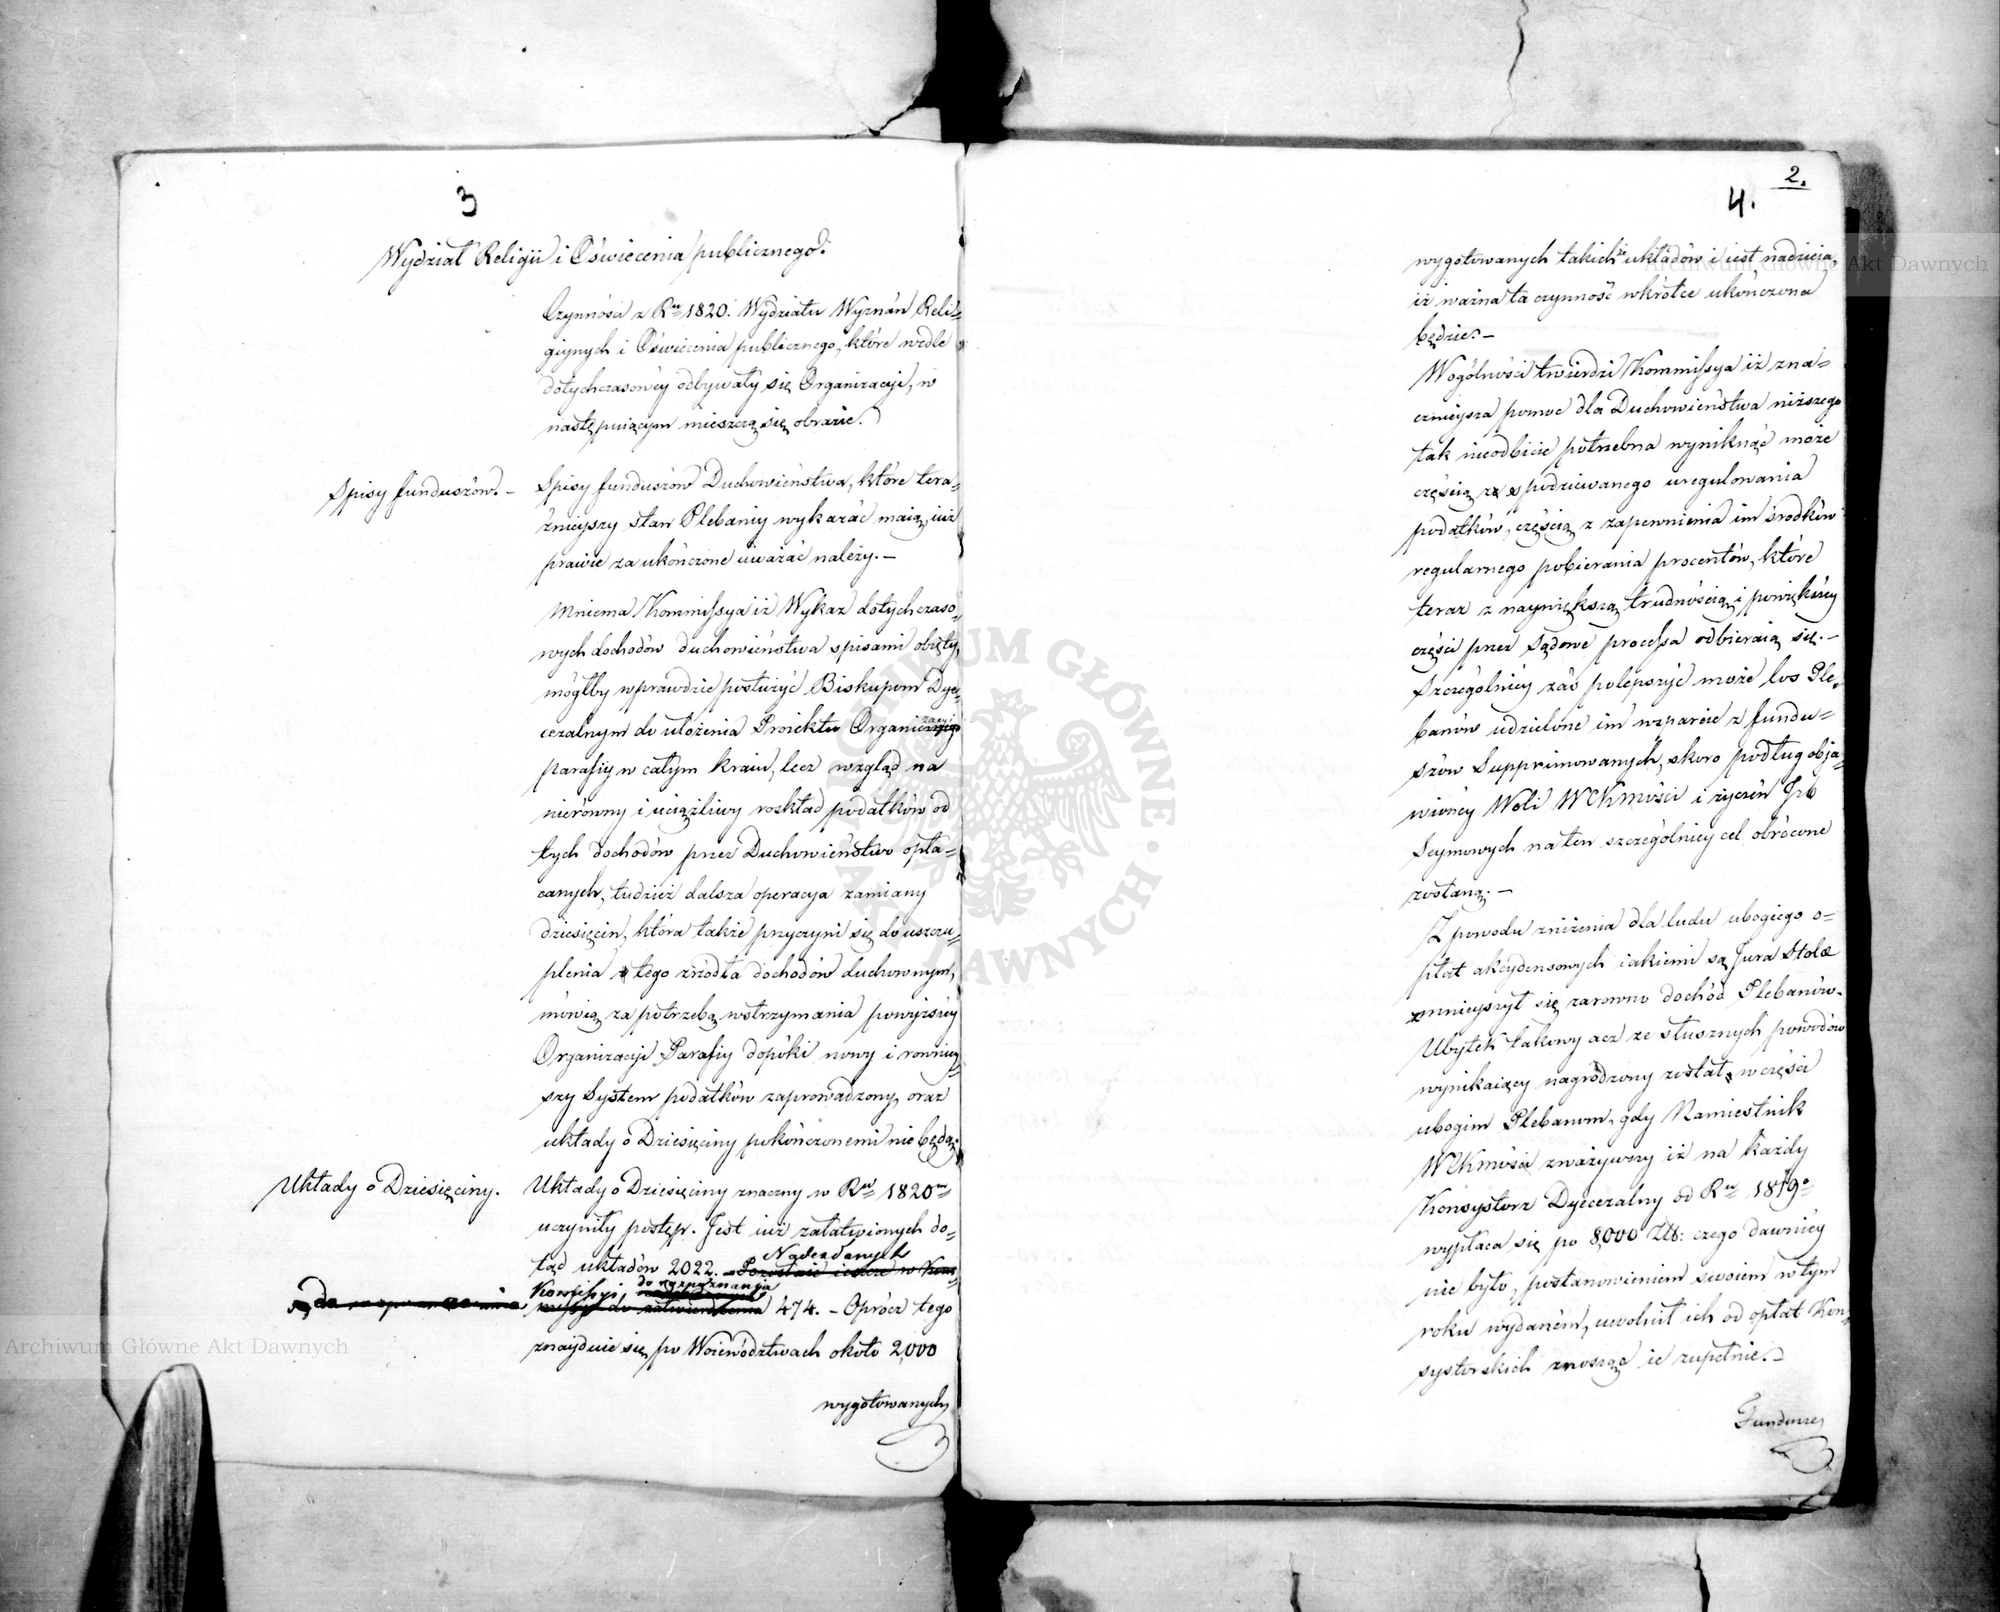 3
Wydział Religii i Oświecenia publicznego.
Czynności z Ru 1820. Wydziału Wyznań Reli=
giynych i Oświecenia publicznego, które wedle
dotychczasowéy odbywały się Organizacyi, w
następuiącym mieszczą się obrazie.
Spisy funduszów. -
Spisy funduszów Duchowieństwa, które tera=
źnieyszy stan Plebaniy wykazać maią, iuż
prawie za ukończone uważać należy. -
Mniema Kommissya iż Wykaz dotychczaso=
wych dochodów duchowieństwa spisami obięty,
mógłby wprawdzie posłużyć Biskupom Dye=
cezalnym do ułożenia Proiektu
parafiy w całym kraiu, lecz wzgląd na
nierówny i uciążliwy rozkład podatków od
tych dochodów przez Duchowieństwo opła=
canych, tudzież dalsza operacya zamiany
dziesięcin, która także przyczyni się do uszczu=
plenia tego źródła dochodów duchownym,
mówią za potrzebą wstrzymania powyższéy
Organizacyi Parafiy dopóki nowy i równiey=
szy System podatków zaprowadzony, oraz
układy o Dziesięciny pokończonemi nie będą.
Układy o Dziesięciny.
Układy o Dziesięciny znaczny w Ru 1820m
uczyniły postęp. Jest iuż załatwionych do=
tąd układów 2022. Pozostaie ieszcze w Kom=
Nadesłanych
Kommissyi, do rozpoznania
missyi do zatwierdzenia 474. - Oprócz tego
znayduie się po Woiewództwach około 2,000
wygotowanych
2.
4.
wygotowanych takichże układów i iest nadzieia,
iż ważna ta czynność wkrótce ukończona
będzie. -
Wogólności twierdzi Kommissya iż zna=
cznieysza pomoc dla Duchowieństwa niższego
tak nieodbicie potrzebna wyniknąć może
częścią z spodziewanego uregulowania
podatków, częścią z zapewnienia im środków
regularnego pobierania procentów, które
teraz z naywiększą trudnością i powiększéy
części przez Sądowe processa odbieraią się. -
Szczególniéy zaś polepszyć może los Ple=
banów udzielone im wsparcie z fundu=
szów Supprimowanych, skoro podług obja=
wionéy Woli WKMości i życzeń Izb
Seymowych na ten szczególniey cel obrócone
zostaną. -
Z powodu zniżenia dla ludu ubogiego o=
płat akcydensowych iakiemi są Jura Stolæ
zmnieyszył się zarówno dochód Plebanów.
Ubytek takowy acz ze słusznych powodów
wynikaiący nagrodzony został w części
ubogim Plebanom, gdy Namiestnik
WKMości zważywszy iż na każdy
Konsystorz Dyecezalny od Ru 1819o
wypłaca się po 8,000 Zł: czego dawniéy
nie było, postanowieniem swoiem w tym
roku wydaném, uwolnił ich od opłat Kon=
systorskich znosząc ie zupełnie.
Fundusze
ARCHIWUM GŁÓWNE AKT DAWNYCH
Archiwum Główne Akt Dawnych
Archiwum Główne Akt Dawnych